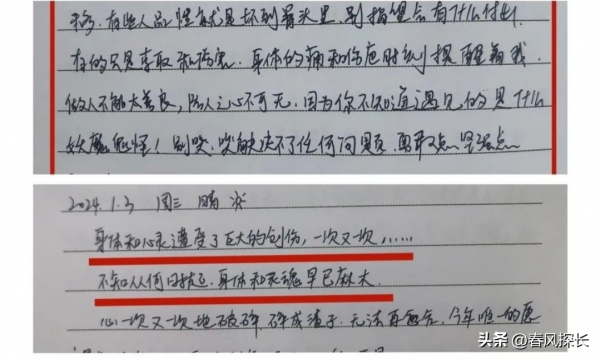 移,有些人品性就是坏到骨头里,别指望会有什么付出,
有的只是索取和伤害,身体的痛和伤疤时刻提醒着我,
做人不能太善良,防人之心不可无,因为你不知道遇见的是什么
妖魔鬼怪!别哭,哭解决不了任何问题,勇敢点~坚强点~
2024.1.3 周三 晴
身体和心灵遭受了巨大的创伤,一次又一次,……
不知从何时起,身体和灵魂早已麻木.
心一次又一次地破碎 碎成渣子,无法再愈合,今年唯一的愿
头条 @春风探长